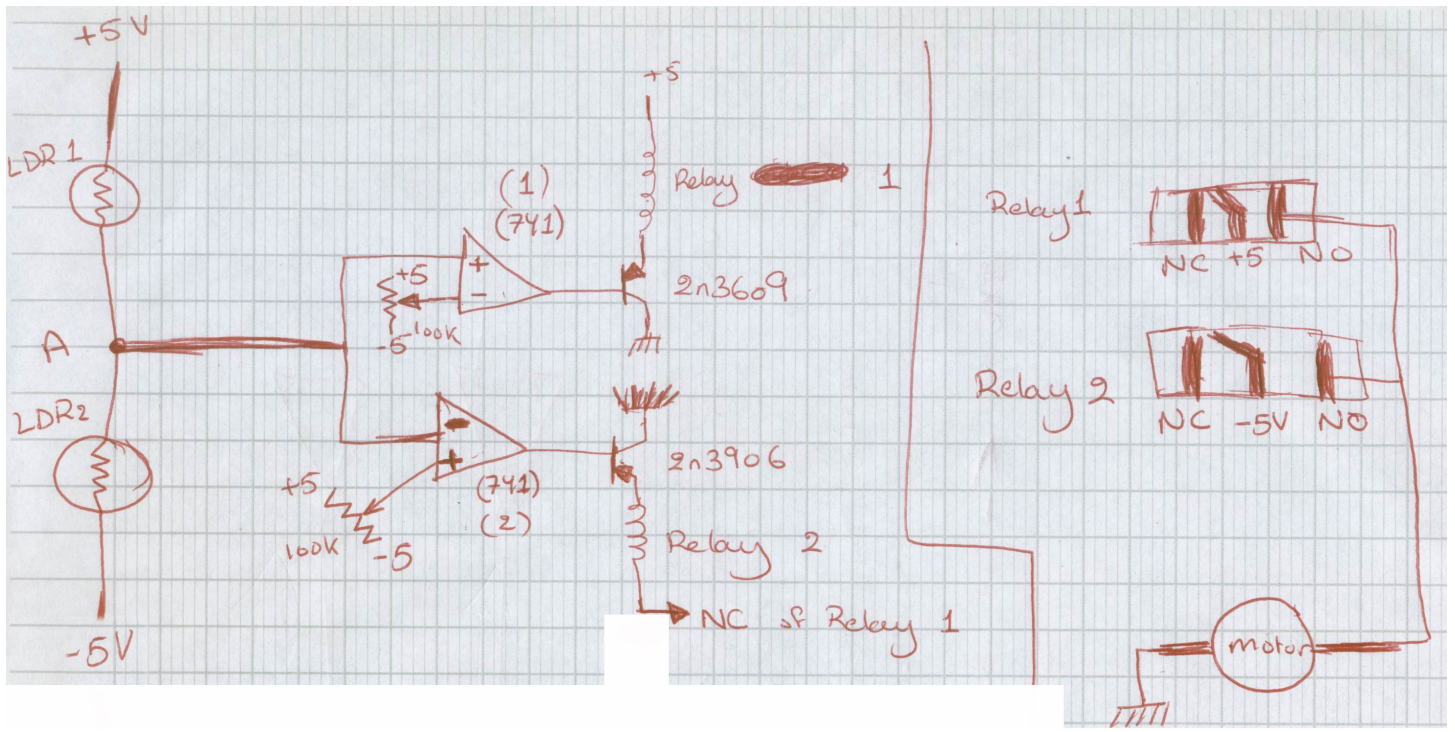 +5V
LDR 1
A
LDR2
-5V
(1)
(741)
+
-
+5
-5
100K
+5
Relay 1
2n3609
-
+
(741)
(2)
+5
100K
-5
2n3906
Relay 2
NC of Relay 1
Relay1
NC +5 NO
Relay 2
NC -5V NO
motor